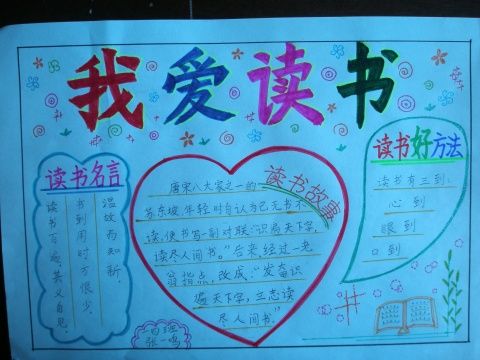 我爱读书
读书名言
温故而知新。
书到用时方恨少。
读书百遍,其义自见。
读书故事
唐宋八大家之一的
苏东坡,年轻时自认为己无书不
读,便书写一副对联:"识遍天下字,
读尽人间书。"后来,经过一老
翁指点,改成:"发奋识
遍天下字,立志读
尽人间书。"
读书好方法
读书有三到:
心到
眼到
口到
张一鸣